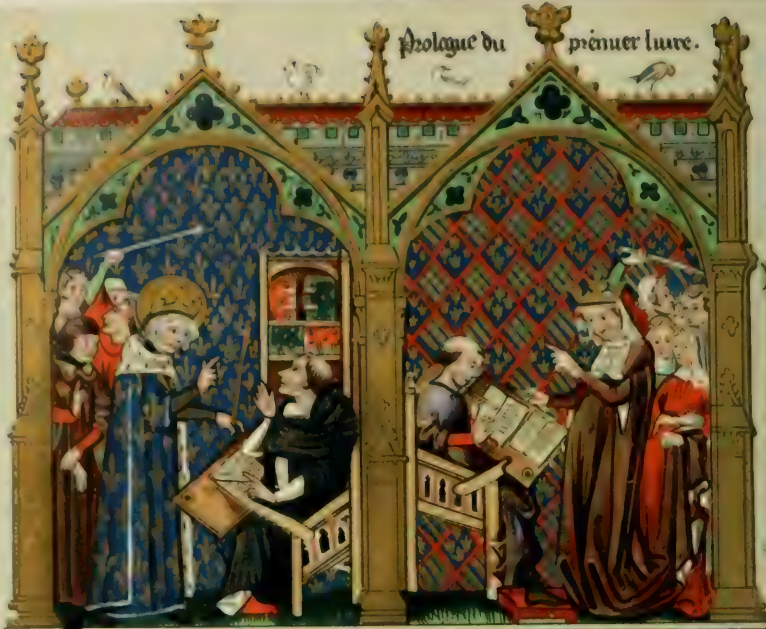 Prologue du premier liure.